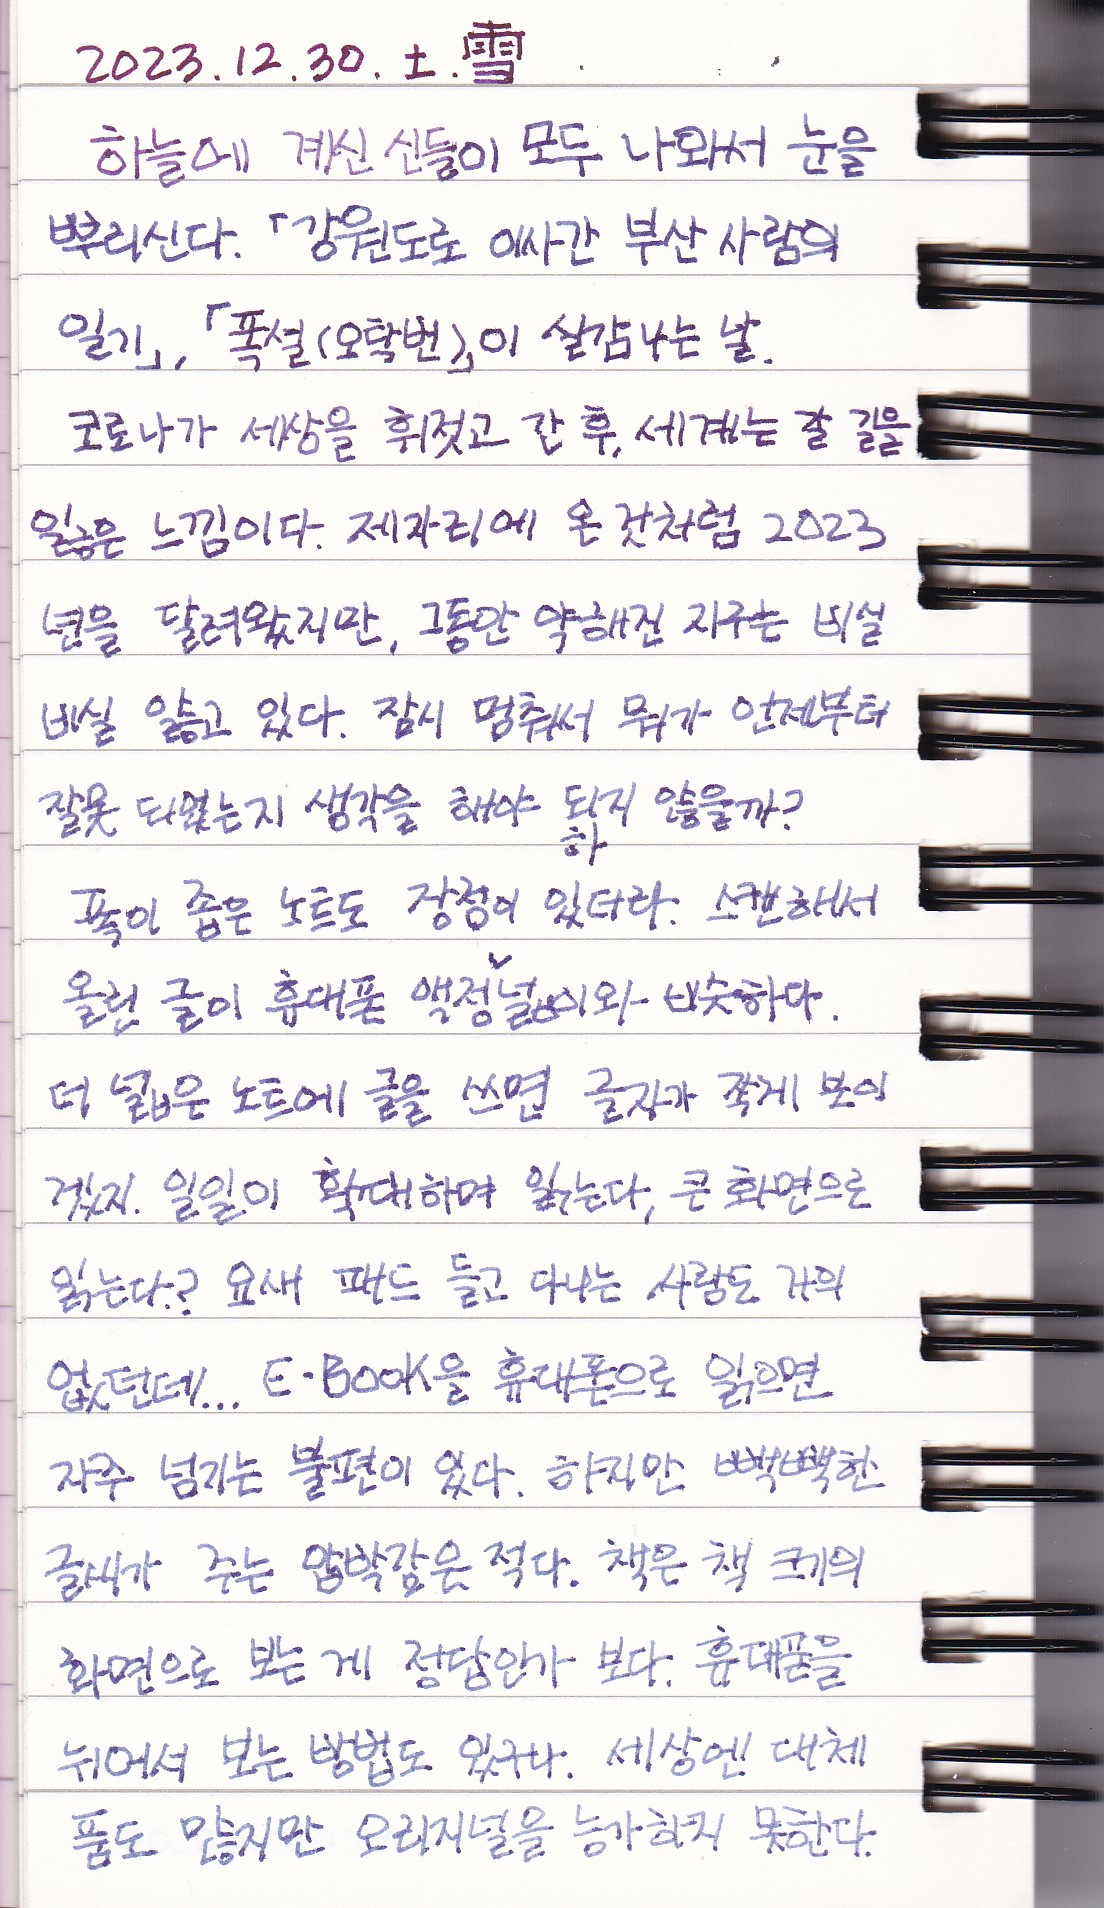 2023.12.30. 土. 雪
하늘에 계신 신들이 모두 나와서 눈을
뿌리신다. 「강원도로 이사간 부산 사람의
일기」, 「폭설(오탁번)」이 실감나는 날.
코로나가 세상을 휘젓고 간 후, 세계는 갈 길을
잃은 느낌이다. 제자리에 온 것처럼 2023
년을 달려왔지만, 그동안 약해진 지구는 비실
비실 앓고 있다. 잠시 멈춰서 뭐가 언제부터
잘못 되었는지 생각을 해야 되지 않을까?
하
폭이 좁은 노트도 장점이 있더라. 스캔해서
올린 글이 휴대폰 액정∨넓이와 비슷하다.
더 넓은 노트에 글을 쓰면 글자가 작게 보이
겠지. 일일이 확대하며 읽는다, 큰 화면으로
읽는다? 요새 패드 들고 다니는 사람도 거의
없던데... E-BOOK을 휴대폰으로 읽으면
자주 넘기는 불편이 있다. 하지만 빽빽한
글씨가 주는 압박감은 적다. 책은 책 크기의
화면으로 보는 게 정답인가 보다. 휴대폰을
뉘어서 보는 방법도 있구나. 세상엔 대체
품도 많지만 오리지널을 능가하지 못한다.